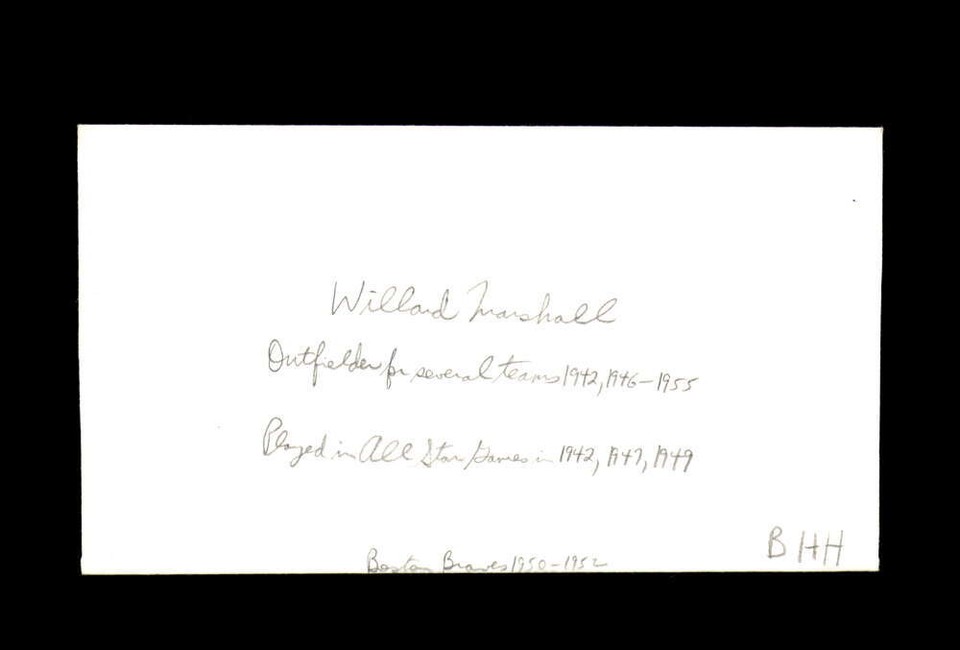 Willard Marshall
Outfielder for several teams 1942, 1946-1955
Played in All Star Games in 1942, 1947, 1949
BHH
Boston Braves 1950-1952